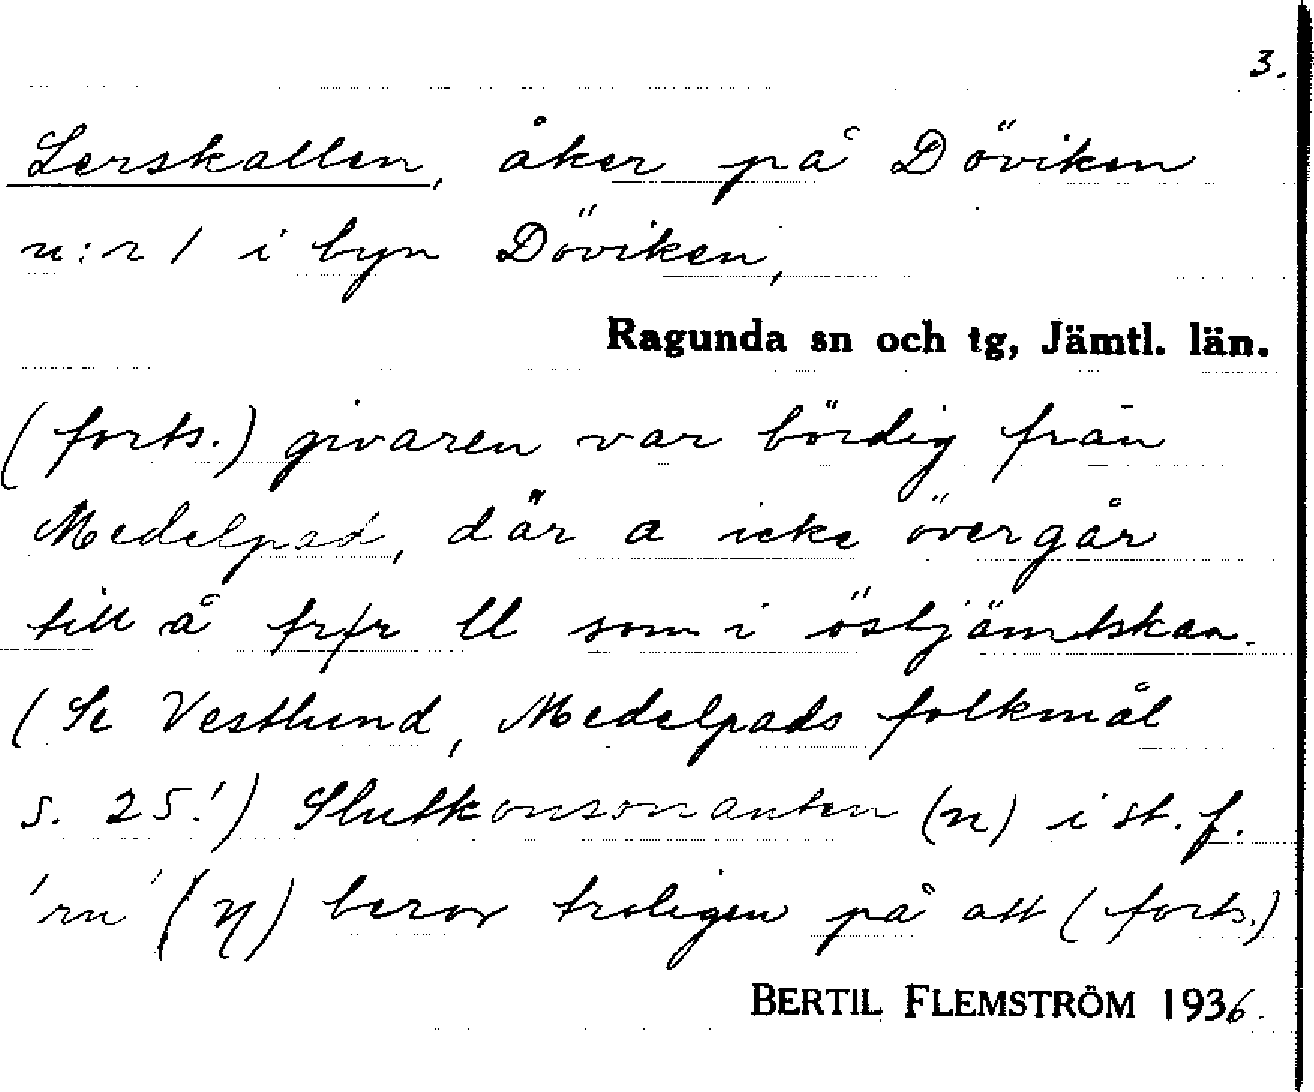 3.
Lerskallen, åker på Döviken
n:r 1 i byn Döviken,
Ragunda sn och tg, Jämtl. län.
(forts.) givaren var bördig från
Medelpad, där a icke övergår
till å fr/r ll som i östjämtskan.
(Se Vestlund, Medelpads folkmål
s. 25!) Slutkonsonanten (n) i st. f.
'rn' (η) beror troligen på att (forts.)
BERTIL FLEMSTRÖM 1936.